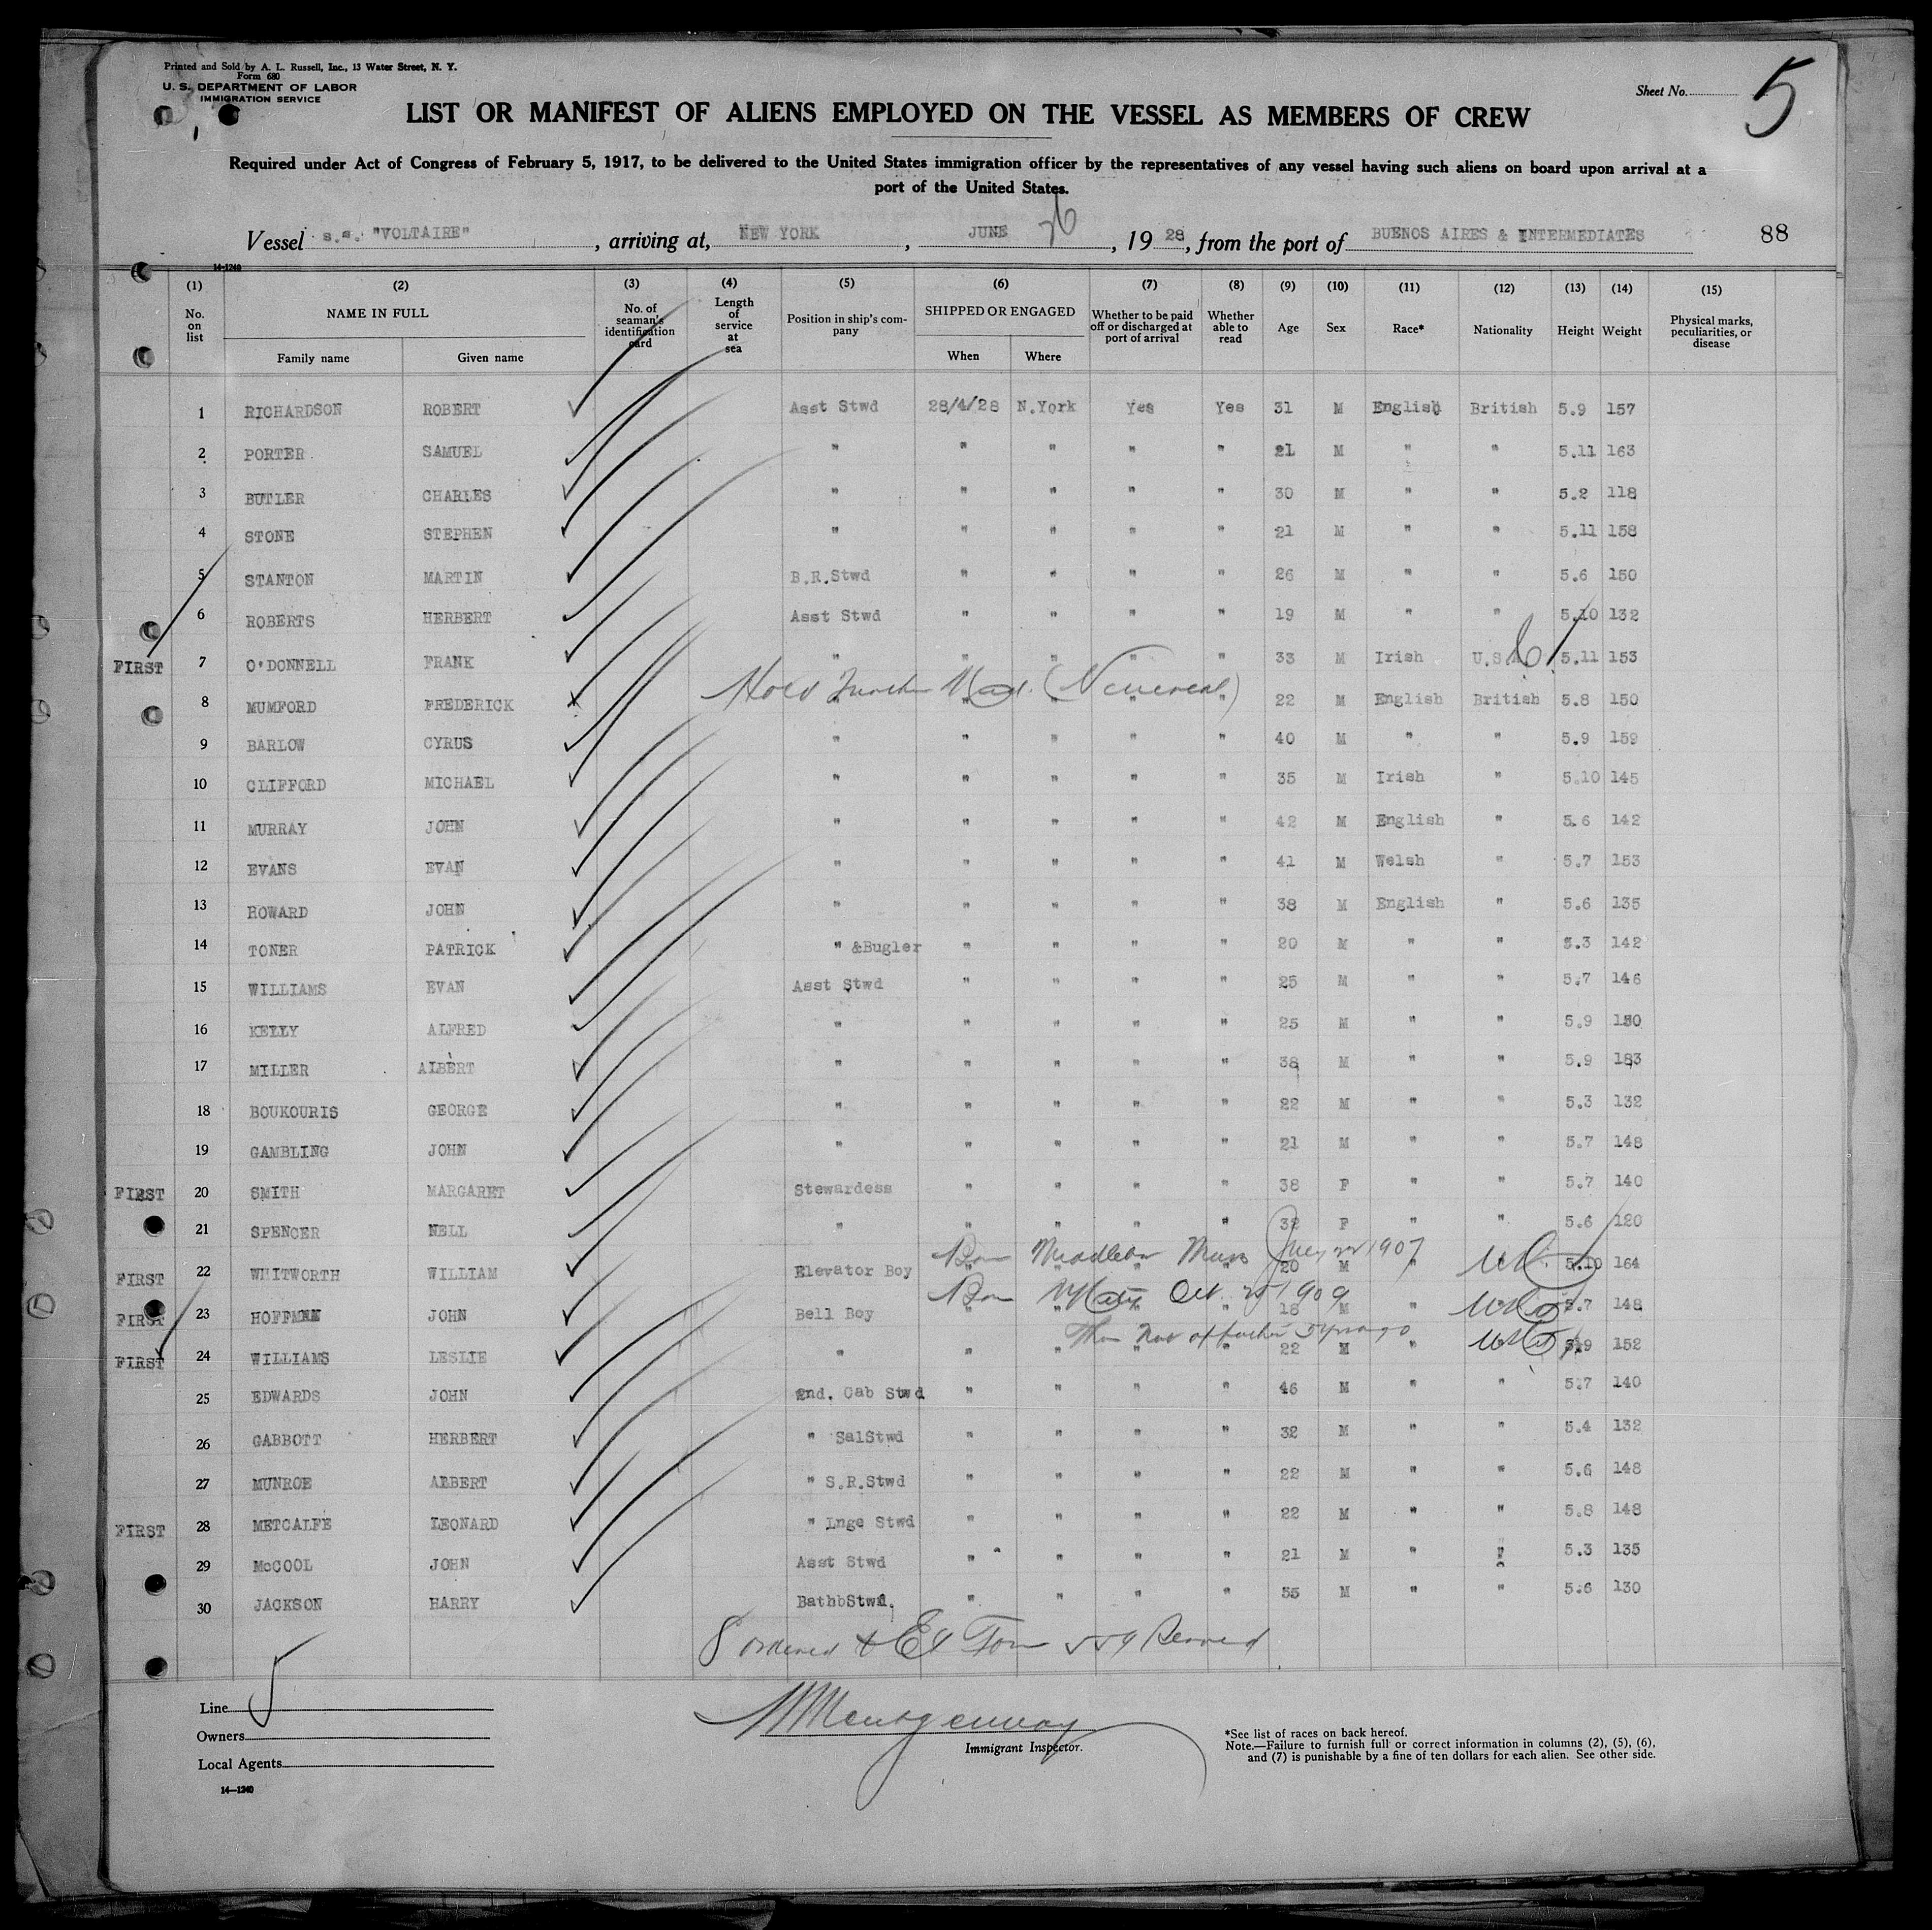 Printed and Sold by A. L. Russell, Inc., 13 Water Street, N. Y.
Form 680
U. S. DEPARTMENT OF LABOR
IMMIGRATION SERVICE
Sheet No. 5
LIST OR MANIFEST OF ALIENS EMPLOYED ON THE VESSEL AS MEMBERS OF CREW
Required under Act of Congress of February 5, 1917, to be delivered to the United States immigration officer by the representatives of any vessel having such aliens on board upon arrival at a
port of the United States.
Vessel s.s. "VOLTAIRE", arriving at, NEW YORK, JUNE, 1928, from the port of BUENOS AIRES & INTERMEDIATES 88
14-1240
(1) (2) (3) (4) (5) (6) (7) (8) (9) (10) (11) (12) (13) (14) (15)
No. on list NAME IN FULL Family name Given name No. of seaman's identification card Length of service at sea Position in ship's company SHIPPED OR ENGAGED When Where Whether to be paid off or discharged at port of arrival Whether able to read Age Sex Race* Nationality Height Weight Physical marks, peculiarities, or disease
1 RICHARDSON ROBERT Asst Stwd 28/4/28 N.York Yes Yes 31 M English British 5.9 157
2 PORTER SAMUEL " " " " " 21 M " " 5.11 163
3 BUTLER CHARLES " " " " " 30 M " " 5.2 118
4 STONE STEPHEN " " " " " 21 M " " 5.11 158
5 STANTON MARTIN B.R.Stwd " " " " 26 M " " 5.6 150
6 ROBERTS HERBERT Asst Stwd " " " " 19 M " " 5.10 132
FIRST 7 O'DONNELL FRANK " " " " " 33 M Irish U.S. 5.11 153
Hold Med. (Venereal)
8 MUMFORD FREDERICK " " " " 22 M English British 5.8 150
9 BARLOW CYRUS " " " " " 40 M " " 5.9 159
10 CLIFFORD MICHAEL " " " " " 35 M Irish " 5.10 145
11 MURRAY JOHN " " " " " 42 M English " 5.6 142
12 EVANS EVAN " " " " " 41 M Welsh " 5.7 153
13 HOWARD JOHN " " " " " 38 M English " 5.6 135
14 TONER PATRICK " &Bugler " " " " 20 M " " 5.3 142
15 WILLIAMS EVAN Asst Stwd " " " " 25 M " " 5.7 146
16 KELLY ALFRED " " " " " 25 M " " 5.9 150
17 MILLER ALBERT " " " " " 38 M " " 5.9 183
18 BOUKOURIS GEORGE " " " " " 22 M " " 5.3 132
19 GAMBLING JOHN " " " " " 21 M " " 5.7 148
FIRST 20 SMITH MARGARET Stewardess " " " " 38 F " " 5.7 140
21 SPENCER NELL " " " " " 32 F " " 5.6 120
Born Mass 1907
FIRST 22 WHITWORTH WILLIAM Elevator Boy " " " " 20 M " 5.10 164
Born Oct. 1909
FIRST 23 HOFFMAN JOHN Bell Boy " " " " 18 M " 5.7 148
FIRST 24 WILLIAMS LESLIE " " " " " 22 M " 5.9 152
25 EDWARDS JOHN 2nd. Cab Stwd " " " " 46 M " " 5.7 140
26 GABBOTT HERBERT " SalStwd " " " " 32 M " " 5.4 132
27 MUNROE ALBERT " S.R.Stwd " " " " 22 M " " 5.6 148
FIRST 28 METCALFE LEONARD " Lnge Stwd " " " " 22 M " " 5.8 148
29 McCOOL JOHN Asst Stwd " " " " 21 M " " 5.3 135
30 JACKSON HARRY BathbStwd. " " " " 35 M " " 5.6 130
Line
Owners
Local Agents
14—1240
Immigrant Inspector.
*See list of races on back hereof.
Note.—Failure to furnish full or correct information in columns (2), (5), (6),
and (7) is punishable by a fine of ten dollars for each alien. See other side.